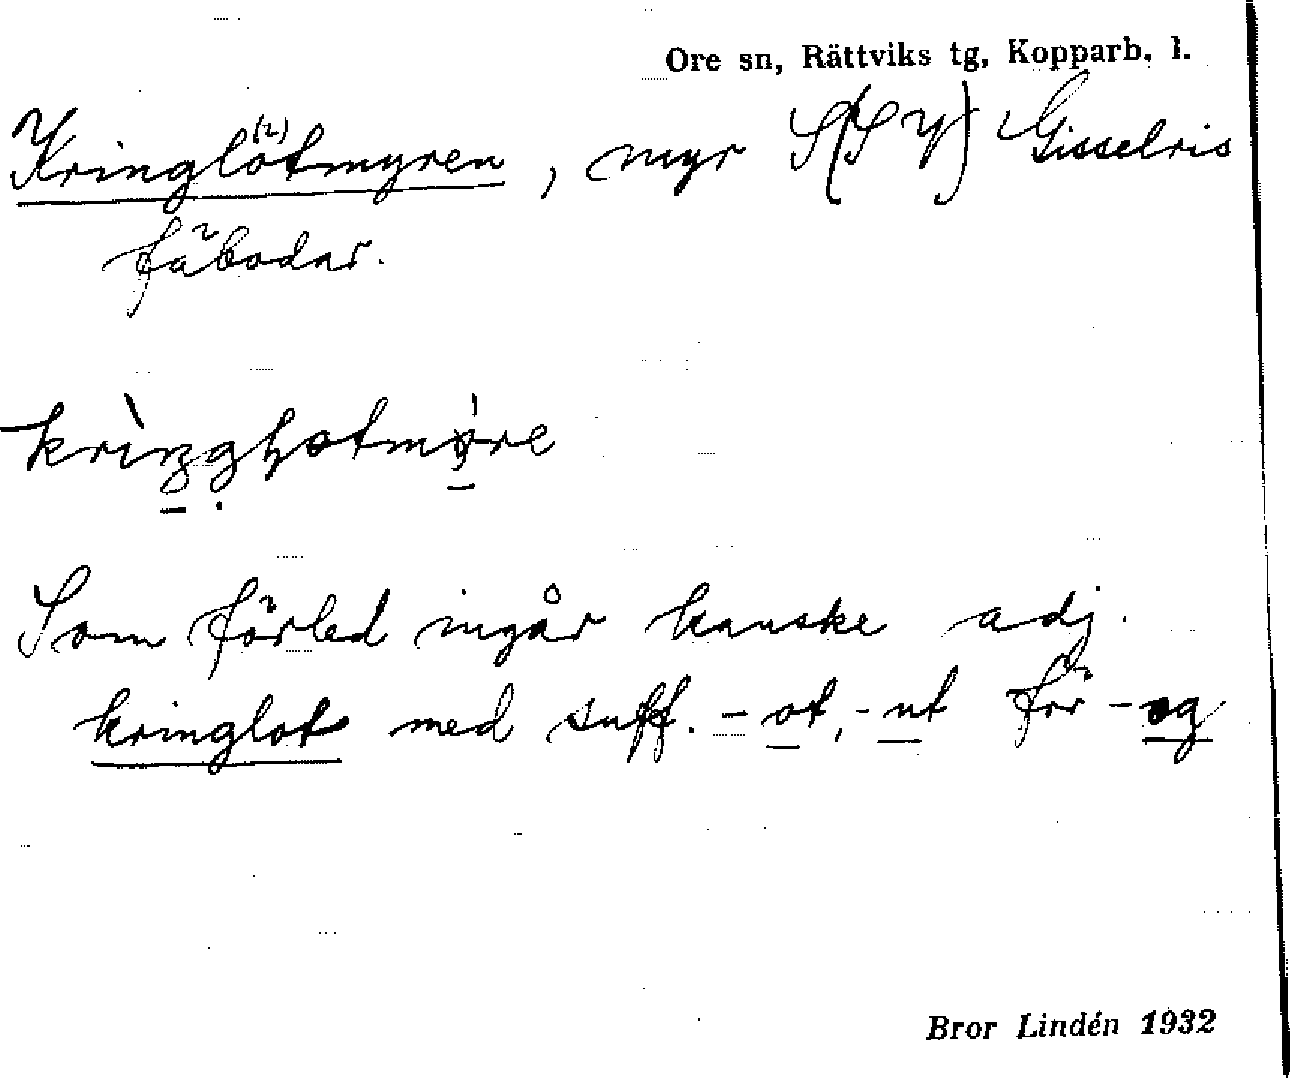 Ore sn, Rättviks tg, Kopparb. l.
Kringlötmyren, myr S(SV) Gisselris
fäbodar.
Som förled ingår kanske adj.
kringlot med suff. -ot, -ut för -og
Bror Lindén 1932